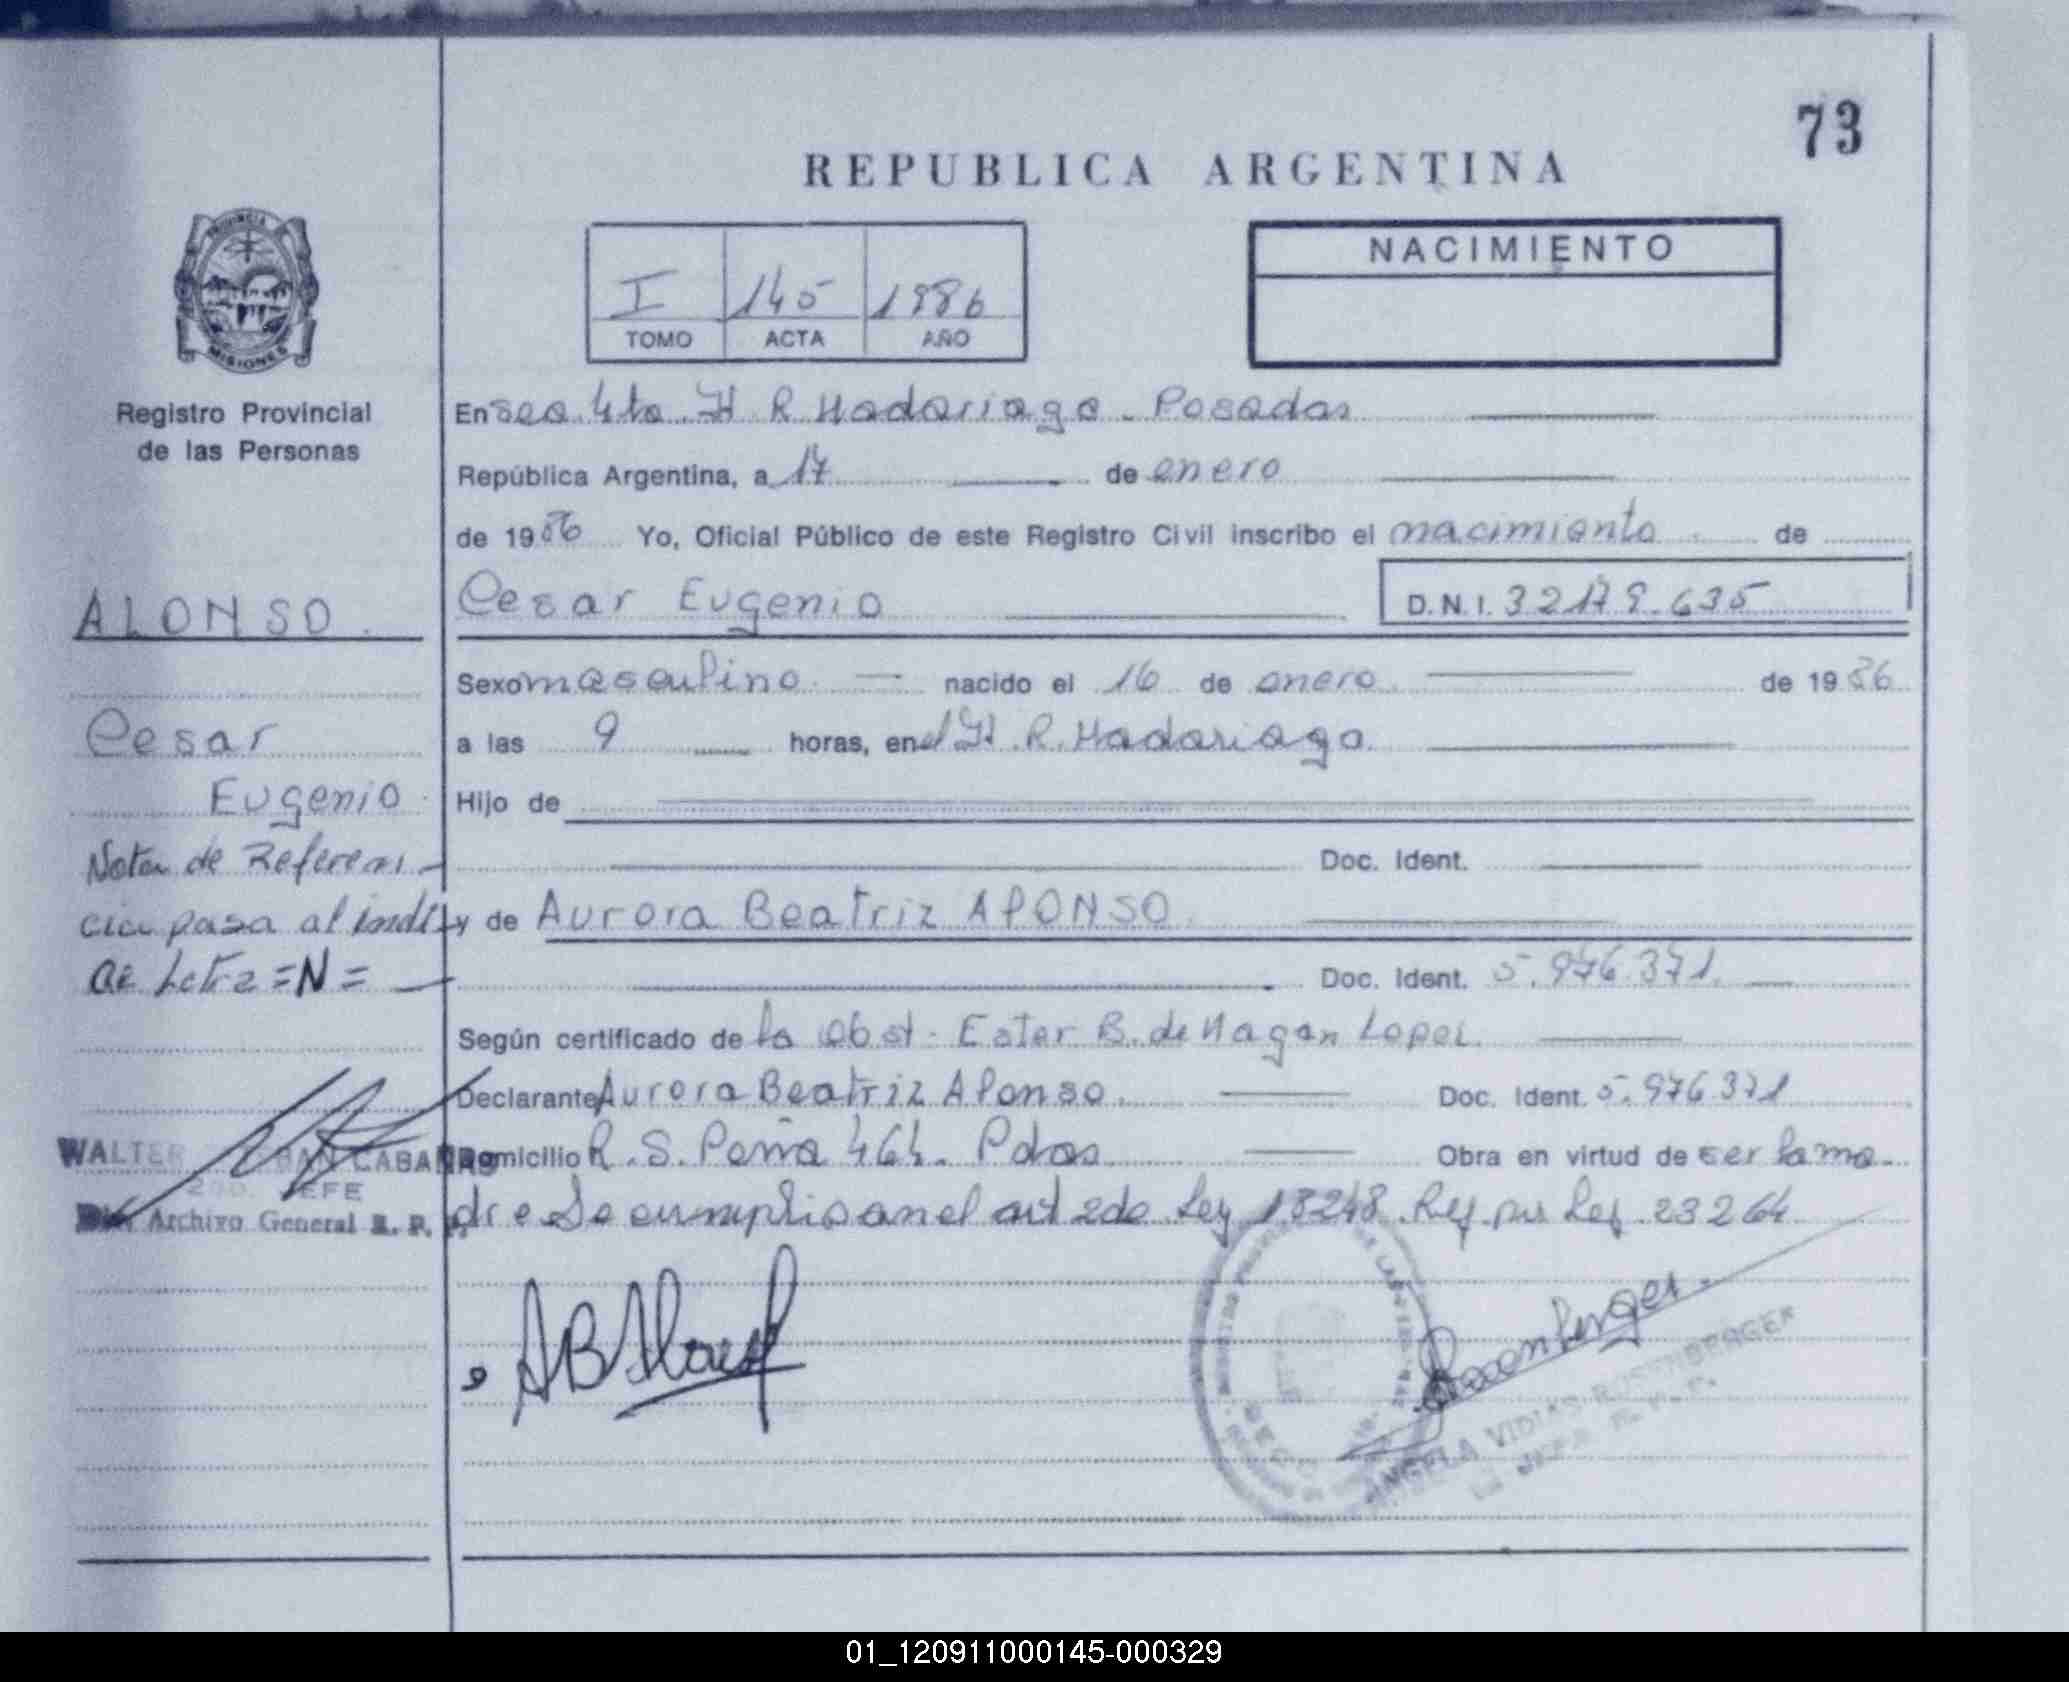 73
REPUBLICA ARGENTINA
PROVINCIA
MISIONES
I 145 1986
TOMO ACTA AÑO
NACIMIENTO
Registro Provincial
de las Personas
En sec. 4ta. H R Madariaga - Posadas
República Argentina, a 17 de enero
de 1986 Yo, Oficial Público de este Registro Civil inscribo el nacimiento de
ALONSO
Cesar Eugenio D.N.I. 32179.635
Sexo masculino nacido el 16 de enero de 1986
Cesar
a las 9 horas, en el H. R. Madariaga
Eugenio
Hijo de
Nota de Referen
Doc. Ident.
cia pasa al indi
y de Aurora Beatriz ALONSO
ce Letra =N=
Doc. Ident. 5.976.371.
Según certificado de la Obst. Ester B. de Nagan Lopez
Declarante Aurora Beatriz Alonso. Doc. Ident. 5.976371
WALTER CABAÑAS
Domicilio R. S. Peña 464. Pdas Obra en virtud de ser la ma
JEFE
Archivo General R. P.
dre Se cumplio con el art 2do Ley 18248. Ref. por Ley 23264
ABAlonso
Rosenberger
ANGELA VIDIAS ROSENBERGER
01_120911000145-000329